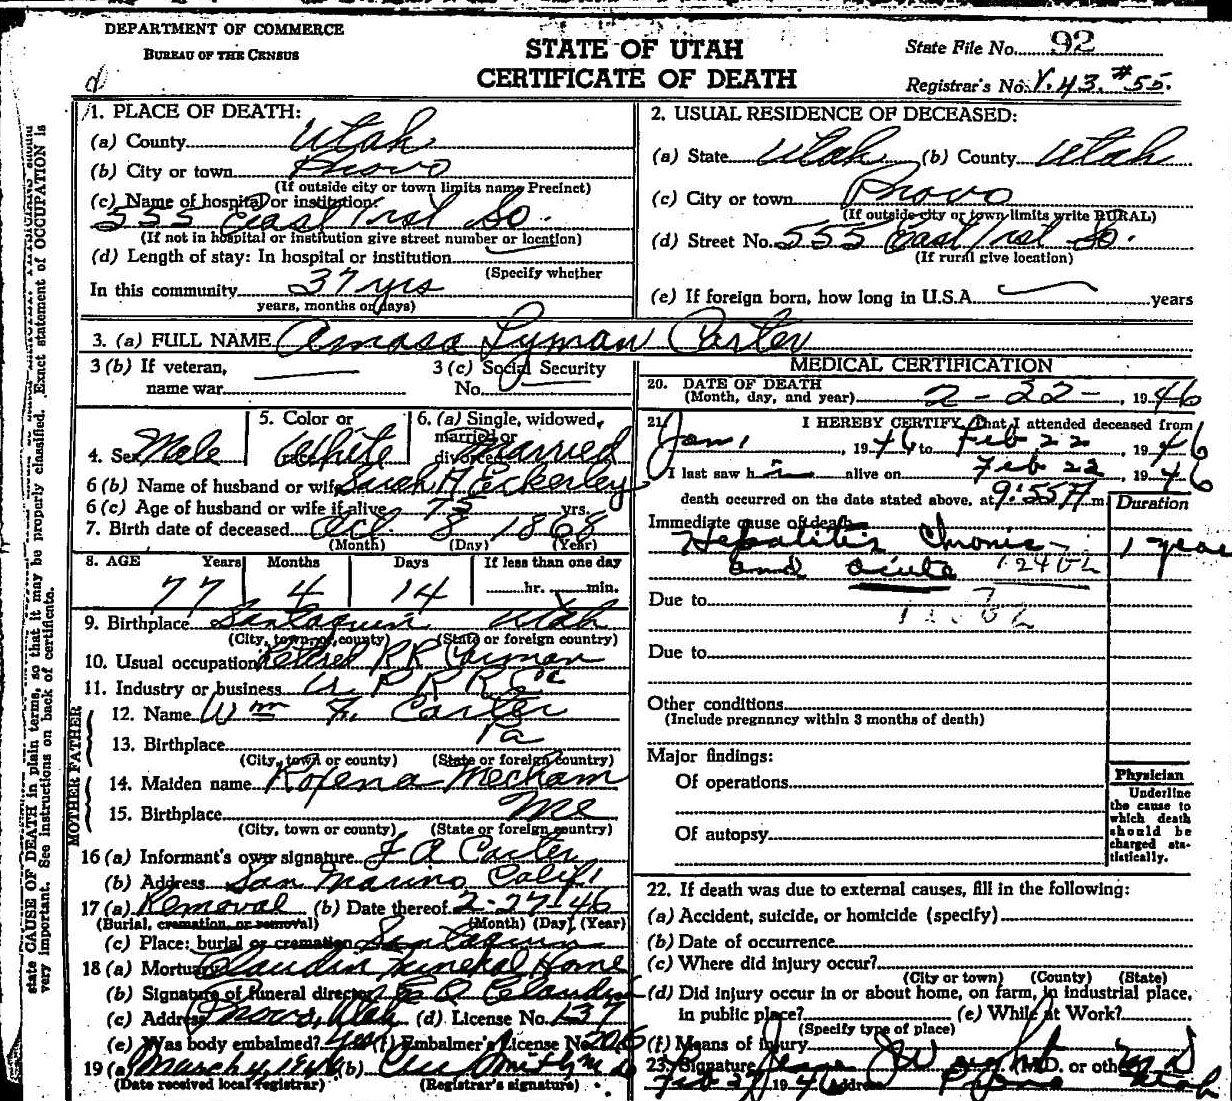 DEPARTMENT OF COMMERCE
BUREAU OF THE CENSUS
STATE OF UTAH
CERTIFICATE OF DEATH
State File No. 92
Registrar's No. V.43. #55.
state CAUSE OF DEATH in plain terms, so that it may be properly classified. Exact statement of OCCUPATION is
very important. See instructions on back of certificate.
1. PLACE OF DEATH:
(a) County Utah
(b) City or town Provo
(If outside city or town limits name Precinct)
(c) Name of hospital or institution:
555 East 1st So.
(If not in hospital or institution give street number or location)
(d) Length of stay: In hospital or institution
(Specify whether
In this community 37 yrs
years, months or days)
2. USUAL RESIDENCE OF DECEASED:
(a) State Utah (b) County Utah
(c) City or town Provo
(If outside city or town limits write RURAL)
(d) Street No. 555 East 1st So.
(If rural give location)
(e) If foreign born, how long in U.S.A. years
3. (a) FULL NAME Amasa Lyman Carter
3 (b) If veteran,
name war
3 (c) Social Security
No.
4. Sex Male
5. Color or
race White
6. (a) Single, widowed,
married or
divorced Married
6 (b) Name of husband or wife Sarah A Eckerley
6 (c) Age of husband or wife if alive 75 yrs.
7. Birth date of deceased Oct. 8 1868
(Month) (Day) (Year)
8. AGE Years Months Days If less than one day
77 4 14 hr. min.
9. Birthplace Santaquin Utah
(City, town or county) (State or foreign country)
10. Usual occupation Retired RR Carman
11. Industry or business U. P R R Co
MOTHER FATHER
12. Name Wm F. Carter
13. Birthplace Pa
(City, town or county) (State or foreign country)
14. Maiden name Roxena Mecham
15. Birthplace Me
(City, town or county) (State or foreign country)
16 (a) Informant's own signature F A Carter
(b) Address San Marino Calif.
17 (a) Removal (b) Date thereof 2-27-46
(Burial, cremation or removal) (Month) (Day) (Year)
(c) Place: burial or cremation Santaquin
18 (a) Mortuary Claudin Funeral Home
(b) Signature of Funeral director E O Claudin
(c) Address Provo, Utah (d) License No. 137
(e) Was body embalmed? Yes (f) Embalmer's License No.
19 (a) March 4, 1946 (b)
(Date received local registrar) (Registrar's signature)
MEDICAL CERTIFICATION
20. DATE OF DEATH
(Month, day, and year) 2-22-, 1946
21. I HEREBY CERTIFY, That I attended deceased from
Jan., 1946 to Feb 22, 1946
I last saw him alive on Feb 22, 1946
death occurred on the date stated above, at 9:55 A m
Duration
Immediate cause of death
Hepatitis Chronic - 1 year
and acute
Due to
Due to
Other conditions
(Include pregnancy within 3 months of death)
Major findings:
Of operations
Of autopsy
Physician
Underline
the cause to
which death
should be
charged sta-
tistically.
22. If death was due to external causes, fill in the following:
(a) Accident, suicide, or homicide (specify)
(b) Date of occurrence
(c) Where did injury occur?
(City or town) (County) (State)
(d) Did injury occur in or about home, on farm, in industrial place,
in public place? (e) While at Work?
(Specify type of place)
(f) Means of injury
23. Signature M.D. or other MD
Feb 27 1946 Address Provo Utah